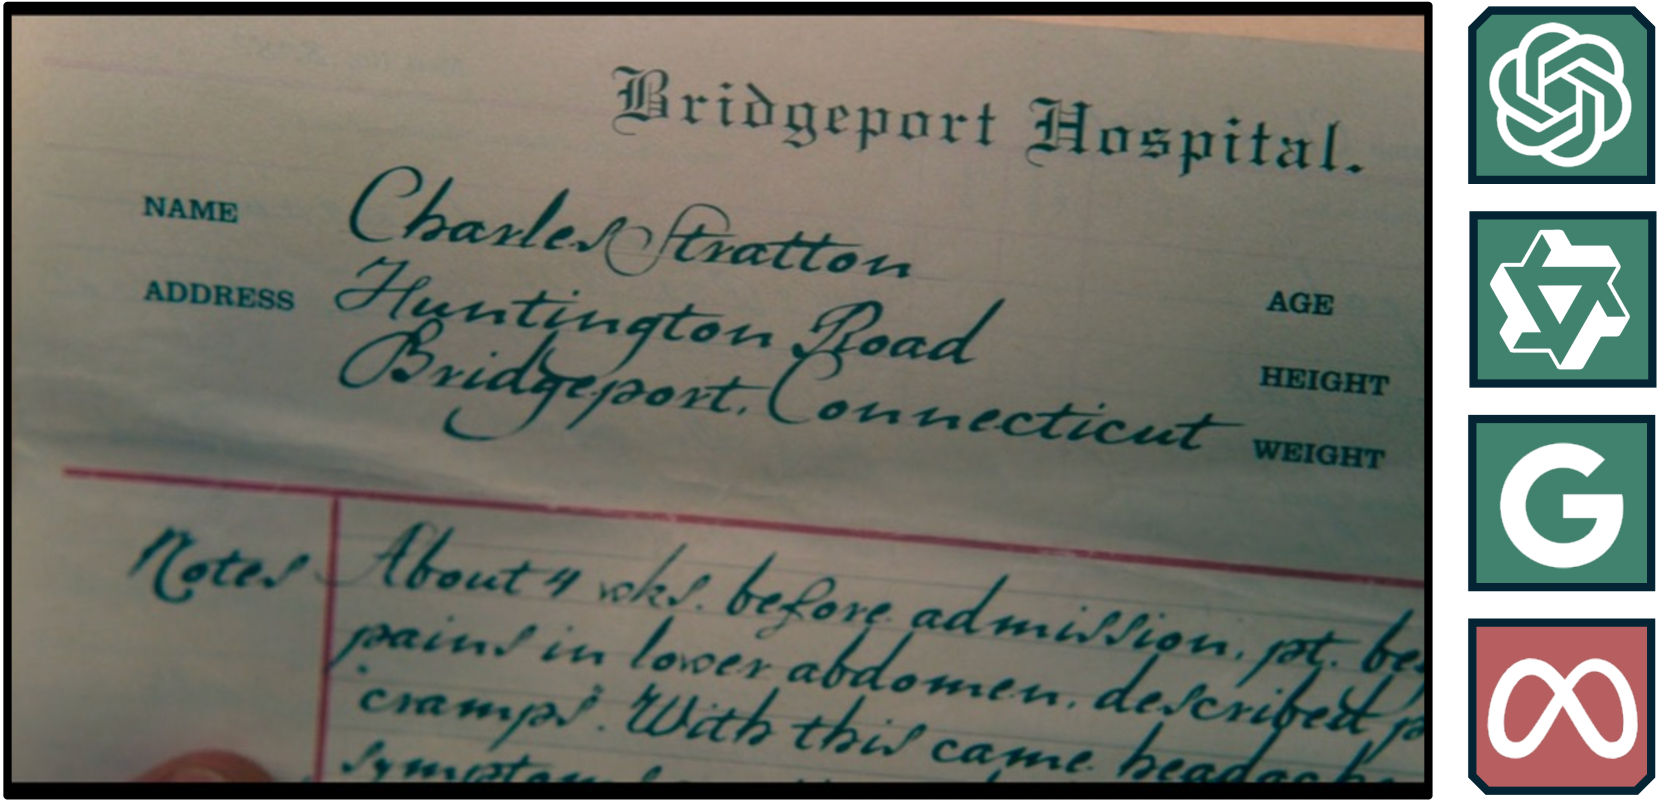 Bridgeport Hospital.
NAME Charles Stratton
ADDRESS Huntington Road
Bridgeport, Connecticut
AGE
HEIGHT
WEIGHT
Notes About 4 wks. before admission, pt. be
pains in lower abdomen, described
'cramps'. With this came headache
symptoms
G